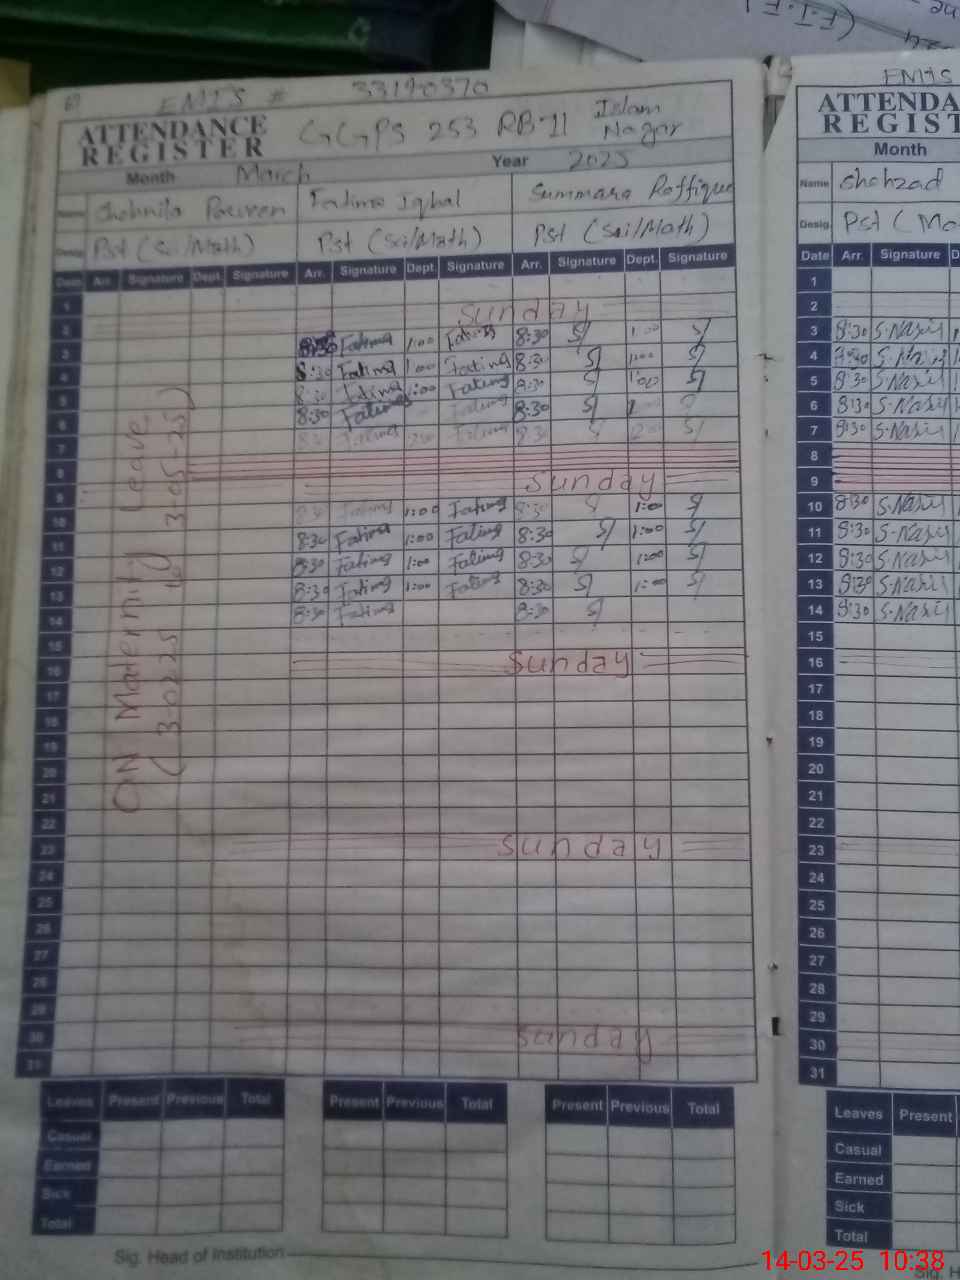 EMIS # 33190370
ATTENDANCE REGISTER
GGPS 253 RB-II Islam Nagar
Month March Year 2025
Name Shahnila Parveen Fatima Iqbal Summara Raffique
Desig. Pst (Sci/Math) Pst (Sci/Math) Pst (Sci/Math)
Date Arr. Signature Dept. Signature Arr. Signature Dept. Signature Arr. Signature Dept. Signature
ON Maternity Leave
1
2 Sunday
3 8:30 Fatima 1:00 Fatima 8:30 1:00
4 8:30 Fatima 1:00 Fatima 8:30 1:00
5 8:30 Fatima 1:00 Fatima 8:30 1:00
6 8:30 Fatima Fatima 8:30
7 8:30 Fatima Fatima 8:30
8
9 Sunday
10 8:30 Fatima 1:00 Fatima 8:30 1:00
11 8:30 Fatima 1:00 Fatima 8:30 1:00
12 8:30 Fatima 1:00 Fatima 8:30 1:00
13 8:30 Fatima 1:00 Fatima 8:30 1:00
14 8:30 Fatima 8:30
15
16 Sunday
17
18
19
20
21
22
23 Sunday
24
25
26
27
28
29
30 Sunday
31
Leaves Present Previous Total Present Previous Total Present Previous Total
Casual
Earned
Sick
Total
Sig. Head of Institution
EMIS
ATTENDA
REGIST
Month
Name Shahzad
Desig. Pst (
Date Arr. Signature
1
2
3 8:30 S.Nasir
4 8:30 S.Nasir
5 8:30 S.Nasir
6 8:30 S.Nasir
7 8:30 S.Nasir
8
9
10 8:30 S.Nasir
11 8:30 S.Nasir
12 8:30 S.Nasir
13 8:30 S.Nasir
14 8:30 S.Nasir
15
16
17
18
19
20
21
22
23
24
25
26
27
28
29
30
31
Leaves Present
Casual
Earned
Sick
Total
14-03-25 10:38